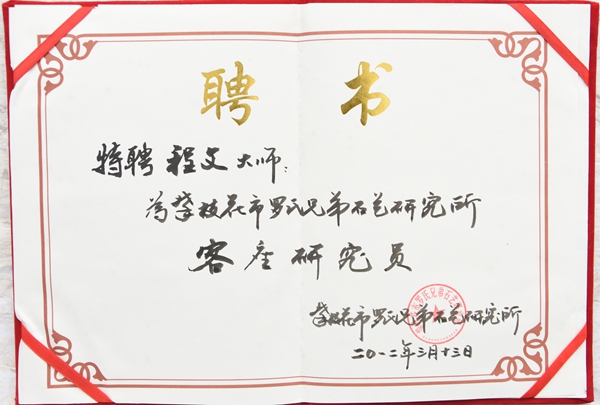 聘书
特聘 程文大师:
为攀枝花市罗氏兄弟石艺研究所
客座研究员
攀枝花市罗氏兄弟石艺研究所
二〇一二年三月十三日